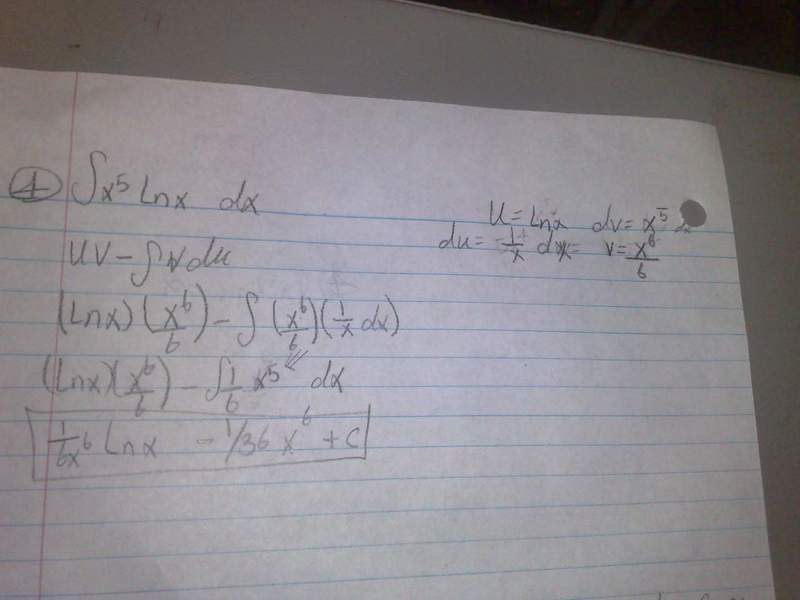 1 ∫x⁵ Lnx dx
U = Lnx dv = x⁵ dx
du = 1/x dx v = x⁶/6
UV - ∫v du
(Lnx)(x⁶/6) - ∫(x⁶/6)(1/x dx)
(Lnx)(x⁶/6) - ∫1/6 x⁵ dx
1/6x⁶ Lnx - 1/36 x⁶ + C